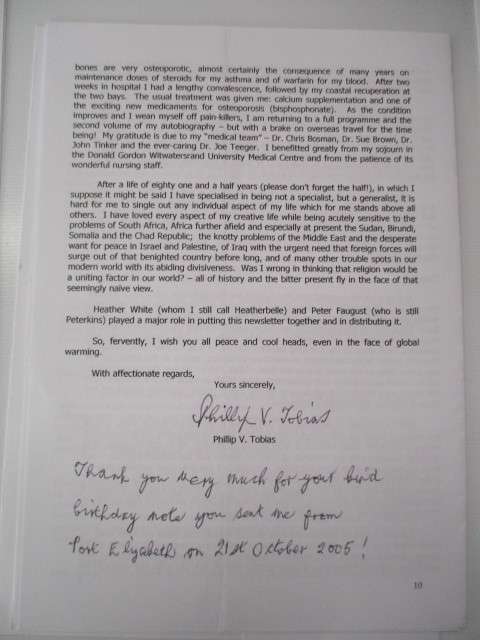 bones are very osteoporotic, almost certainly the consequence of many years on
maintenance doses of steroids for my asthma and of warfarin for my blood. After two
weeks in hospital I had a lengthy convalescence, followed by my coastal recuperation at
the two bays. The usual treatment was given me: calcium supplementation and one of
the exciting new medicaments for osteoporosis (bisphosphonate). As the condition
improves and I wean myself off pain-killers, I am returning to a full programme and the
second volume of my autobiography – but with a brake on overseas travel for the time
being! My gratitude is due to my "medical team" – Dr. Chris Bosman, Dr. Sue Brown, Dr.
John Tinker and the ever-caring Dr. Joe Teeger. I benefitted greatly from my sojourn in
the Donald Gordon Witwatersrand University Medical Centre and from the patience of its
wonderful nursing staff.
After a life of eighty one and a half years (please don't forget the half!), in which I
suppose it might be said I have specialised in being not a specialist, but a generalist, it is
hard for me to single out any individual aspect of my life which for me stands above all
others. I have loved every aspect of my creative life while being acutely sensitive to the
problems of South Africa, Africa further afield and especially at present the Sudan, Birundi,
Somalia and the Chad Republic; the knotty problems of the Middle East and the desperate
want for peace in Israel and Palestine, of Iraq with the urgent need that foreign forces will
surge out of that benighted country before long, and of many other trouble spots in our
modern world with its abiding divisiveness. Was I wrong in thinking that religion would be
a uniting factor in our world? – all of history and the bitter present fly in the face of that
seemingly naïve view.
Heather White (whom I still call Heatherbelle) and Peter Faugust (who is still
Peterkins) played a major role in putting this newsletter together and in distributing it.
So, fervently, I wish you all peace and cool heads, even in the face of global
warming.
With affectionate regards,
Yours sincerely,
Phillip V. Tobias
Phillip V. Tobias
Thank you very much for your kind
birthday note you sent me from
Port Elizabeth on 21st October 2005!
10